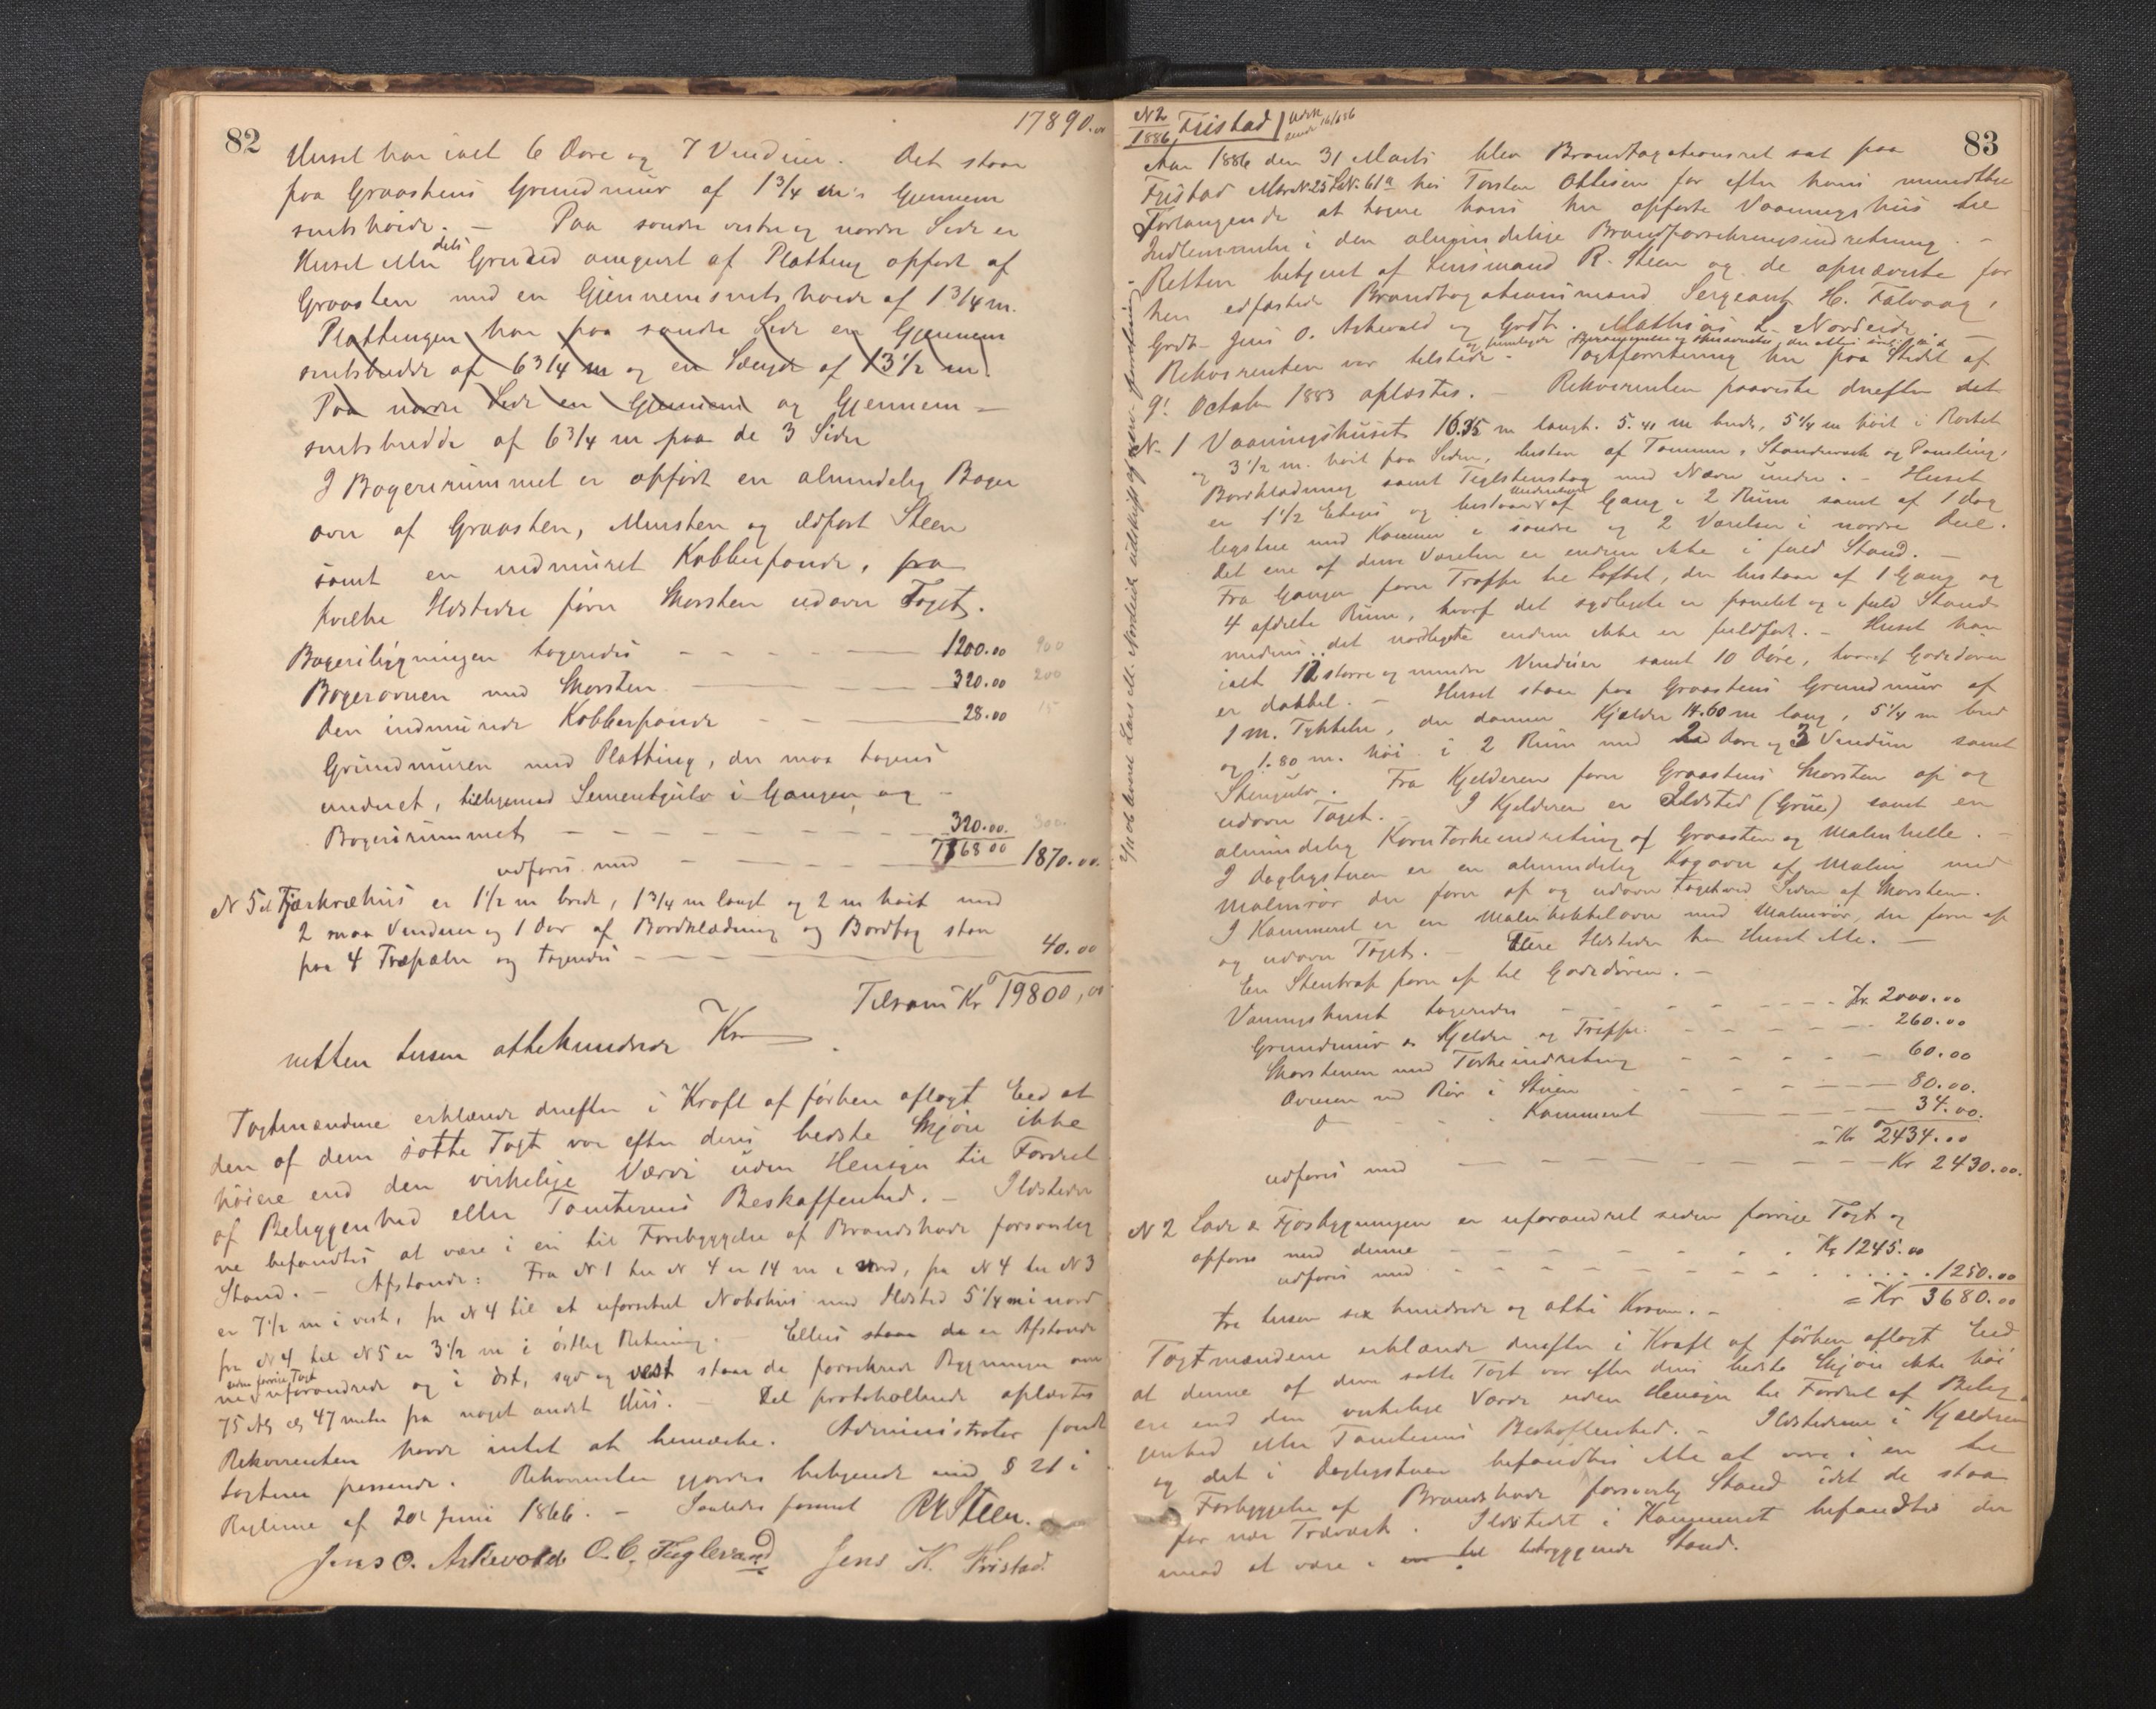 82
17890.00
Huset har ialt 6 Døre og 7 Vinduer. Det staar
paa Graastens Grundmur af 1 3/4 m's Gjennem
snitshøide. – Paa søndre vestre og nordre Side er
Huset eller dets Grund omgivet af Platting opført af
Graasten med en Gjennemsnits høide af 1 3/4 m.
Plattingen har paa søndre Side en Gjennem
snitsbredde af 6 3/4 m og en Længde af 13 1/2 m.
Paa nordre Side en Gjennem og Gjennem-
snitsbredde af 6 3/4 m paa de 3 Sider
I Bagerirummet er opført en almindelig Bager
ovn af Graasten, Mursten og ildfast Steen
samt en indmuret Kobberpande, fra
hvilke Ildsteder fører Skorsten udover Taget.
Bageribygningen taxeredes – – – – 1200.00 900
Bagerovnen med Skorsten – – – 320.00 200
Den indmurede Kobberpande – – – 28.00 15
Grundmuren med Platting, der maa tagens
undret, tilligemed Sementgulv i Gangen og
Bagerirummet – – – – 320.00 300
1868.00
udføres med – – – 1870.00.
N 5 et Fjærkræhus er 1 1/2 m bredt, 1 3/4 m langt og 2 m høit med
2 smaa Vinduer og 1 Dør af Bordklædning og Bordtag staar
paa 4 Træpæler og taxeredes – – – 40.00
Tilsam Kr 19800,00
nitten tusen ottehundrede Kr.
Taxtmændene erklærede derefter i Kraft af førhen aflagt Eed at
den af dem satte Taxt var efter deres bedste Skjøn ikke
høiere end den virkelige Værdi uden Hensyn til Fordel
af Beliggenhed eller Tomternes Beskaffenhed. – Ildstederne
befandtes at være i en til Forebyggelse af Brandskade forsvarlig
Stand. – Afstande: Fra N 1 til N 4 er 14 m i Nord, fra N 4 til N 3
er 7 1/2 m i vest, fra N 4 til et uforsikret Nabohus med Ildsted 5 1/4 m i nord
fra N 4 til N 5 er 3 1/2 m i østlig Retning. – Ellers staar de er Afstande
siden forrige Taxt
ne uforandrede og i øst, syd og vest staar de forsikrede Bygninger over
75 Al. el. 47 meter fra noget andet Hus. – Det protokollerede oplæstes
Rekvirenten havde intet at bemærke. Administrator fandt
taxterne passende. Rekvirenten gjordes bekjendt med § 21 i
Reglerne af 20de Juni 1866. – Saaledes passeret R. Steen.
Jens O. Askevold O. C. Fuglevand Jens K. Fristad.
83
N 2
1886 Fristad
Udsk
sendt 16/6 86
Aar 1886 den 31 Marts blev Brandtaxationsret sat paa
Fristad Mar.N. 25 L.N. 61a hos Torsten Ottesen for efter hans mundtlige
Forlangende at taxere hans her opførte Vaaningshus til
Indlemmelse i den almindelige Brandforsikringsindretning. –
Retten betjent af Lensmand R. Steen og de opnævnte før
hen edfæstede Brandtaxationsmænd Sergeant H. Falvaag,
Grdb. Jens O. Askevold og Grdb. Mathias L. Nordeide. –
Rekvirenten var tilstede. – Taxtforretning her paa Stedet af
9' October 1883 oplæstes. – Rekvirenten paaviste derefter det
N. 1 Vaaningshuset 16.35 m langt. 5.41 m bredt, 5 1/4 m høit i Røstet
og 3 1/2 m. høit paa Siden, bestaar af Tømmer, Standværk og Paneling,
Bordklædning samt Teglstenstag med Næver under. – Huset
er 1 1/2 Etages og bestaar af Gang i 2 Rum samt af 1 dag
ligstue med Kammer i søndre og 2 Værelser i nordre Deel.
Det ene af disse Værelser er endnu ikke i fuld Stand. –
Fra Gangen fører Trappe til Loftet, der bestaar af 1 Gang og
4 afdelte Rum, hvoraf det sydligste er panelet og i fuld Stand
medens det nordligste endnu ikke er fuldført. – Huset har
ialt 12 større og mindre Vinduer samt 10 Døre, hvoraf Gadedøren
er dobbel. – Huset staar paa Graastens Grundmur af
1 m. Tykkelse, der danner Kjælder 14.60 m lang, 5 1/4 m bred
og 1.80 m. høi i 2 Rum med 2 Døre og 3 Vinduer samt
Stengulv. Fra Kjelderen fører Graastens Skorsten op og
udover Taget. – I Kjelderen er Ildsted (Grue) samt en
almindelig Korntørkeindretning af Graasten og Malmhelle. –
I dagligstuen er en almindelig Kogovn af Malm med
Malmrør der fører op og udover Taget ved Siden af Skorstenen.
I Kammeret er en Malmkakkelovn med Malmrør, der fører op
og udover Taget. – Flere Ildsteder har Huset ikke. –
En Stentrap fører op til Gadedøren. –
Vaaningshuset taxeredes – – – Kr. 2000.00
Grundmur m Kjelder og Trappe – – – 260.00
Skorstenen med Tørkeindretning – – – 60.00
Ovnen med Rør i Stuen – – – 80.00.
D – – – Kammeret – – – 34.00.
= Kr 2434.00
udføres med – – – Kr 2430.00.
N 2 Lade & Fjøsbygningen er uforandret siden forrige Taxt og
opføres med denne – – – Kr 1245.00
udføres med – – – 1250.00
= Kr 3680.00
tre tusen sex hundrede og otti Kroner. –
Taxtmændene erklærede derefter i Kraft af førhen aflagt Eed
at denne af dem satte Taxt var efter deres bedste Skjøn ikke høi
ere end den virkelige Værdi uden Hensyn til Fordel af Belig
genhed eller Tomternes Beskaffenhed. – Ildstederne i Kjelderen
og det i Dagligstuen befandtes ikke at være i en til
Forbyggelse af Brandskade forsvarlig Stand idet de staar
for nær Træværk. Ildstedet i Kammeret befandtes der
imod at være i en til betryggende Stand.